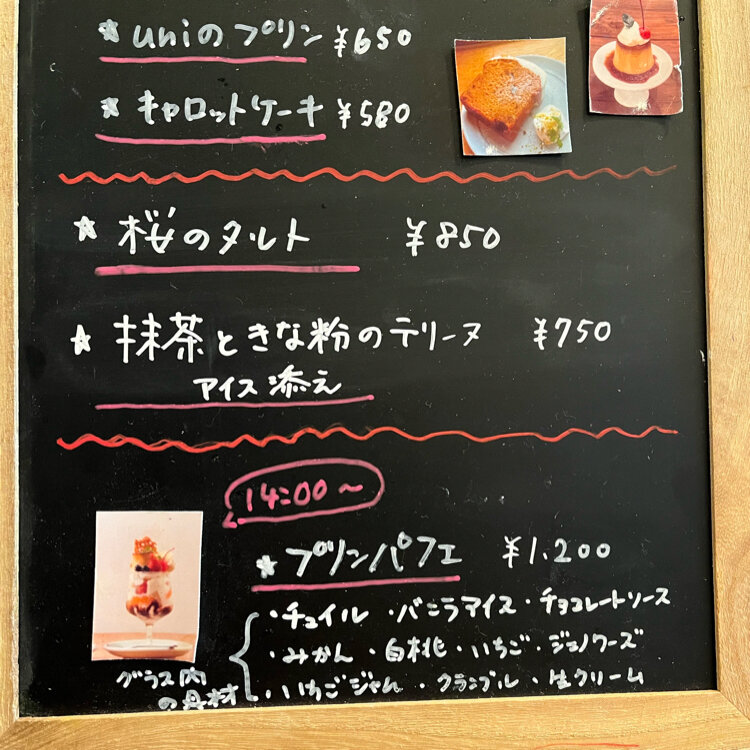 ★ uniのプリン ¥650
★ キャロットケーキ ¥580
★ 桜のタルト ¥850
★ 抹茶ときな粉のテリーヌ ¥750
アイス添え
14:00〜
★ プリンパフェ ¥1.200
・チュイル ・バニラアイス ・チョコレートソース
・みかん ・白桃 ・いちご ・ジェノワーズ
・いちごジャム ・クランブル ・生クリーム
グラス内
の具材